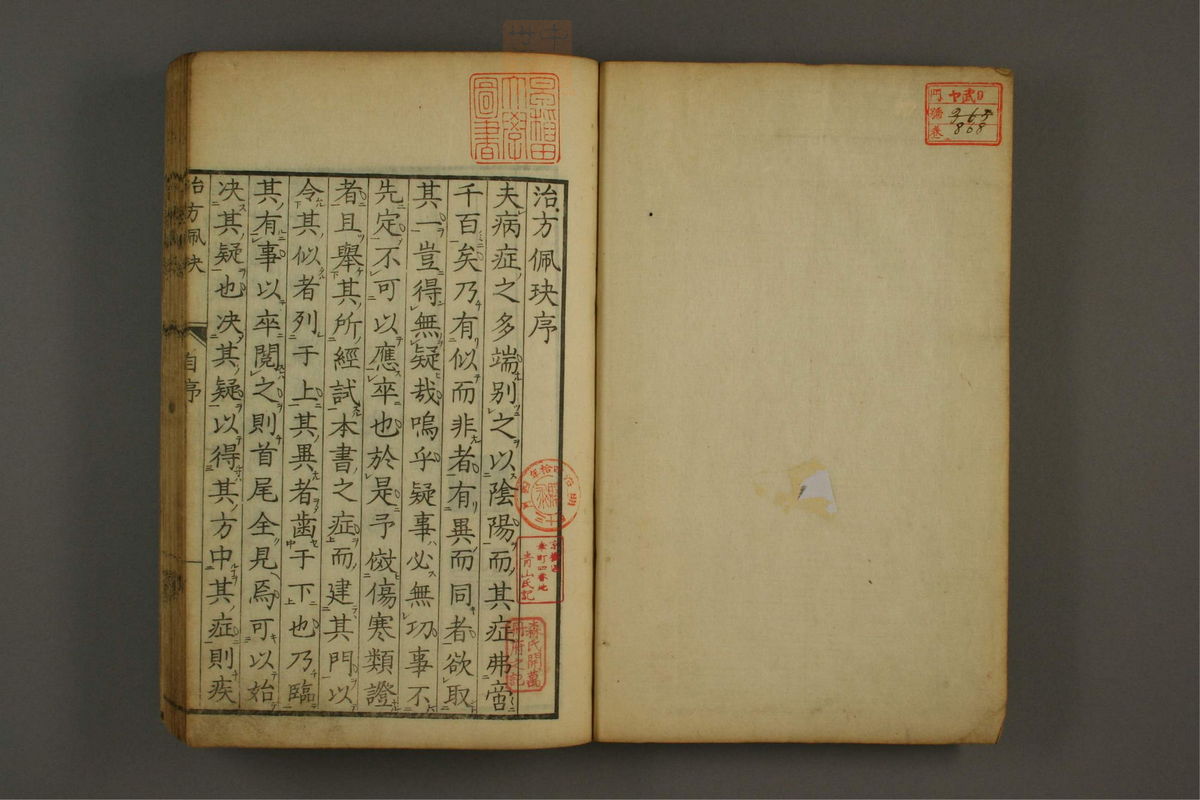 治方佩玦序
夫病症之多端別之以陰陽而其症弗啻
千百矣乃有似而非者有異而同者欲取
其一豈得無疑哉嗚乎疑事必無功事不
先定不可以應卒也於是予倣傷寒類證
者且舉其所經試本書之症而建其門以
令其似者列于上其異者齒于下也乃臨
其有事以卒閱之則首尾全見焉可以始
决其疑也决其疑以得其方中其症則疾
治方佩玦
自序
門
號
卷
968
青山氏記
森氏開萬
冊府之記